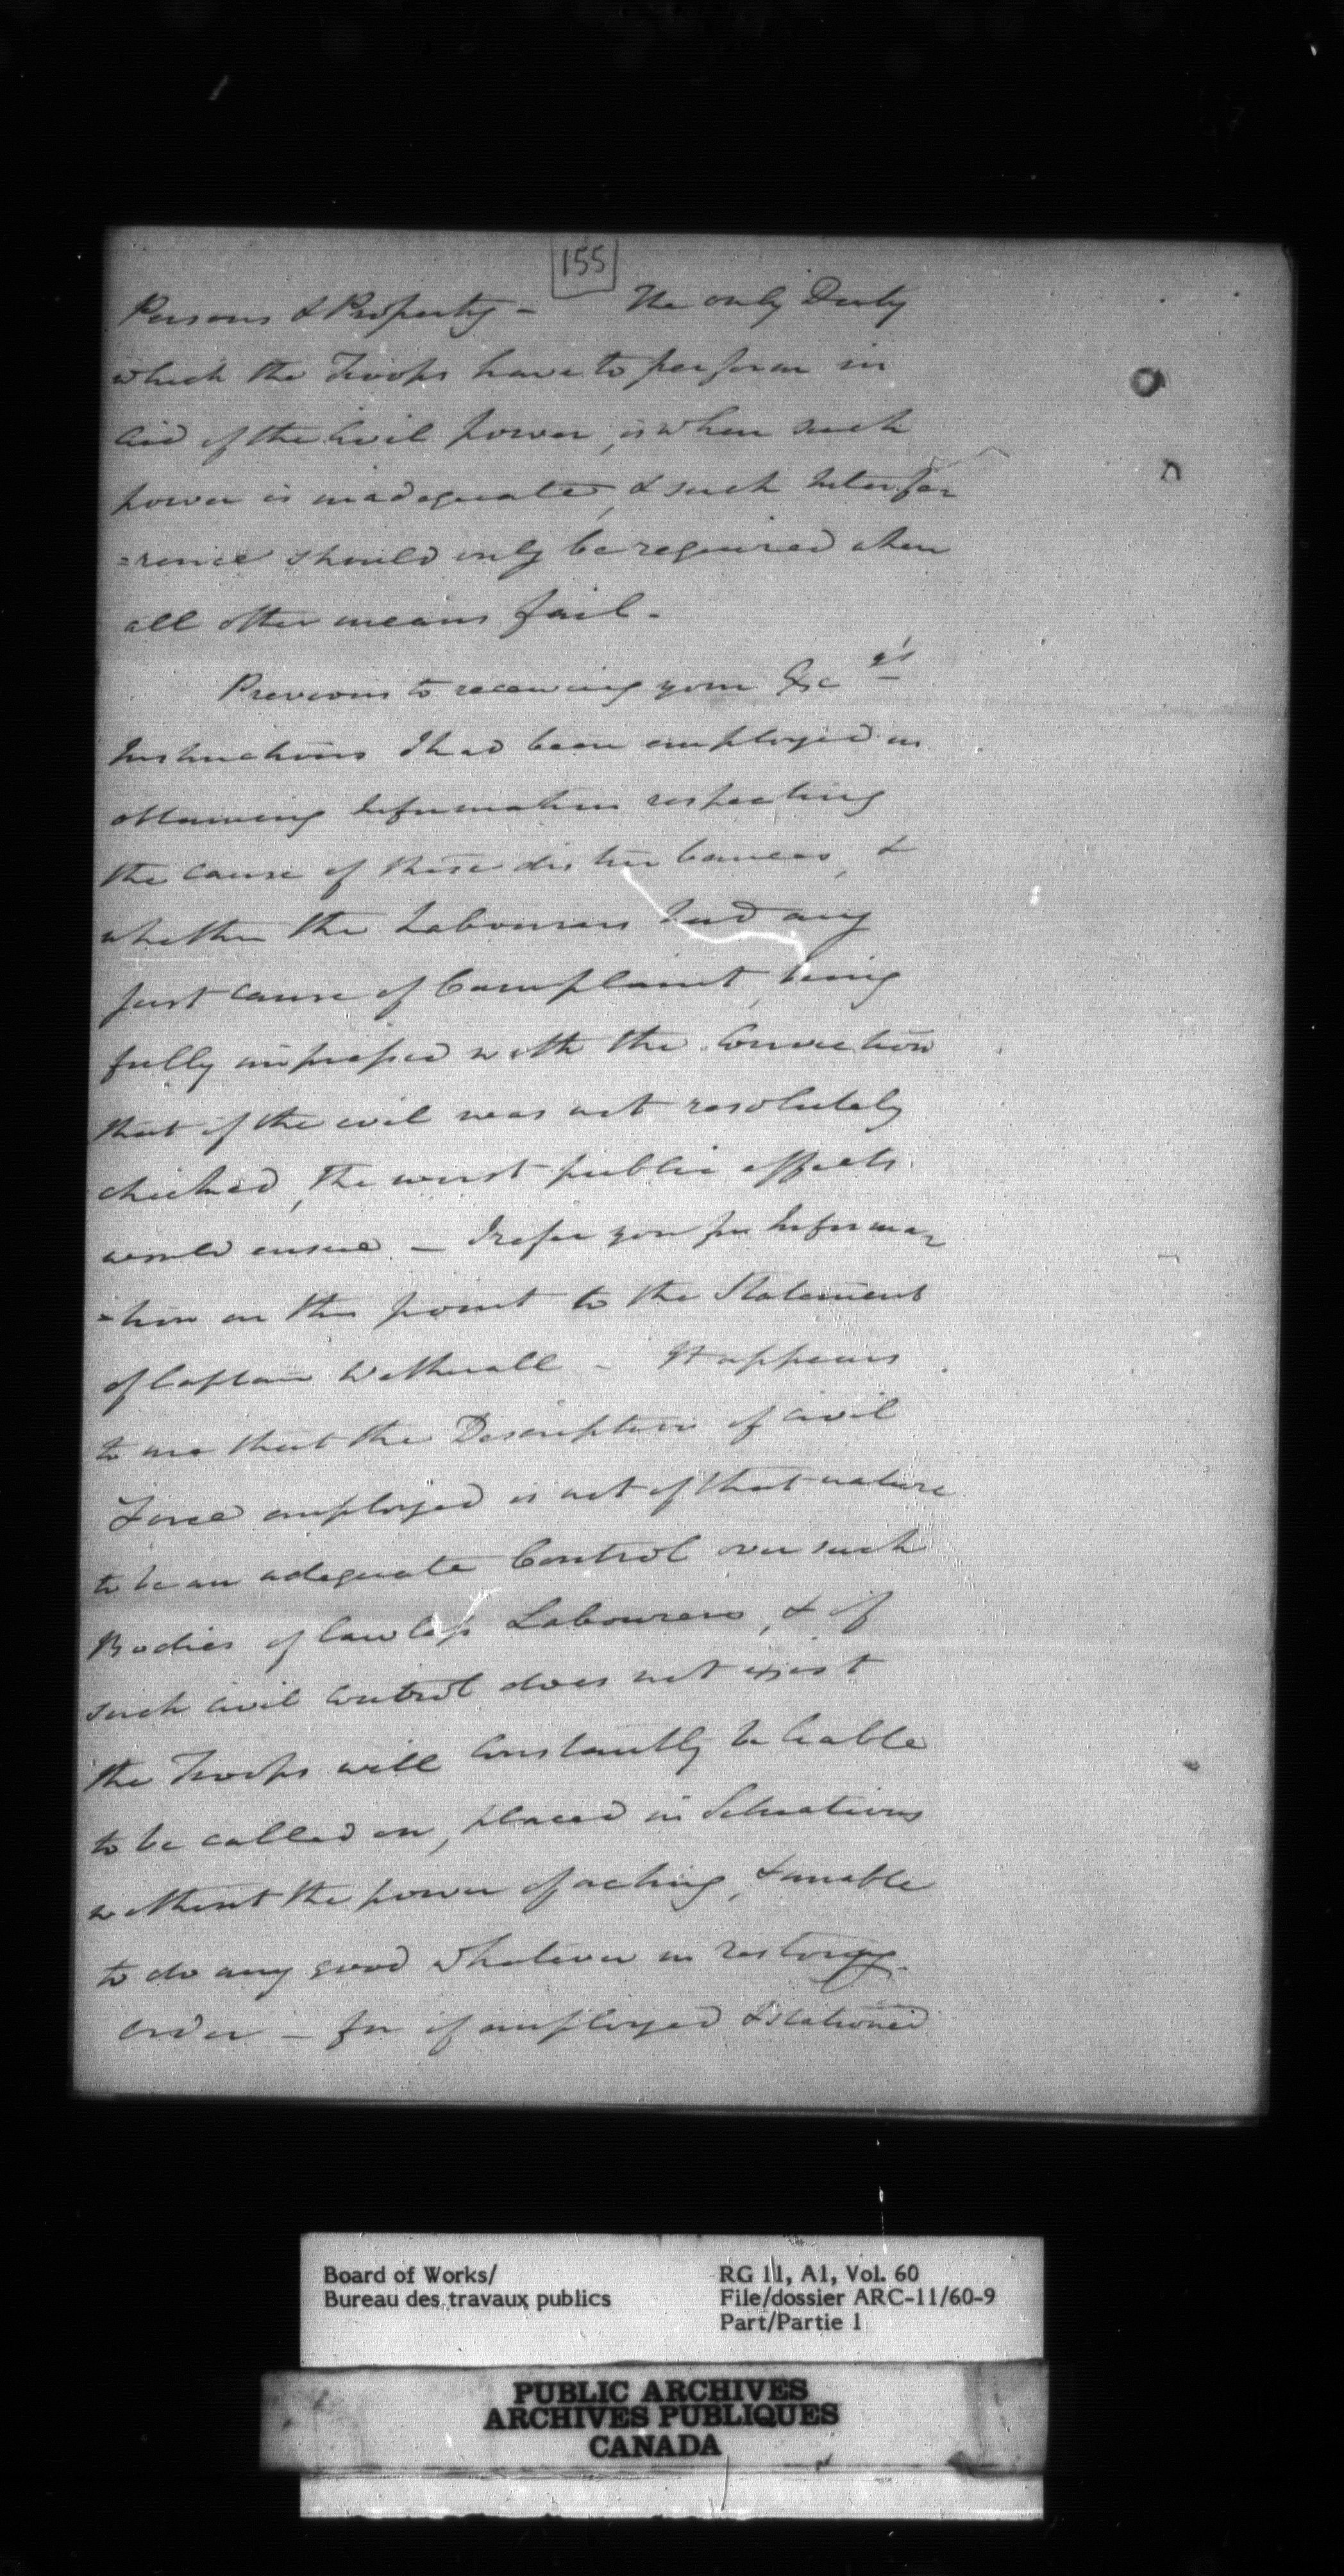 155
Persons & Property - The only Duty
which the Troops have to perform in
aid of the Civil power, is when such
power is inadequate, & such Interfer
=rence should only be required when
all other means fail -
Previous to receiving your Exc y's
Instructions I had been employed in
obtaining Information respecting
the cause of these disturbances, &
whether the Labourers had any
just cause of Complaint, being
fully impressed with the Conviction
that if the evil was not resolutely
checked, the worst public effects
would ensue - I refer you for Informa
-tion on this point to the Statement
of Captain Wetherall - It appears
to me that the Description of Civil
Force employed is not of that nature
to be an adequate Control over such
Bodies of lawless Labourers, & if
such civil control does not exist
the Troops will constantly be liable
to be called on, placed in Situations
without the power of acting, & unable
to do any good whatever in restoring
order - for if employed & stationed
Board of Works/
Bureau des travaux publics
RG 11, A1, Vol. 60
File/dossier ARC-11/60-9
Part/Partie 1
PUBLIC ARCHIVES
ARCHIVES PUBLIQUES
CANADA